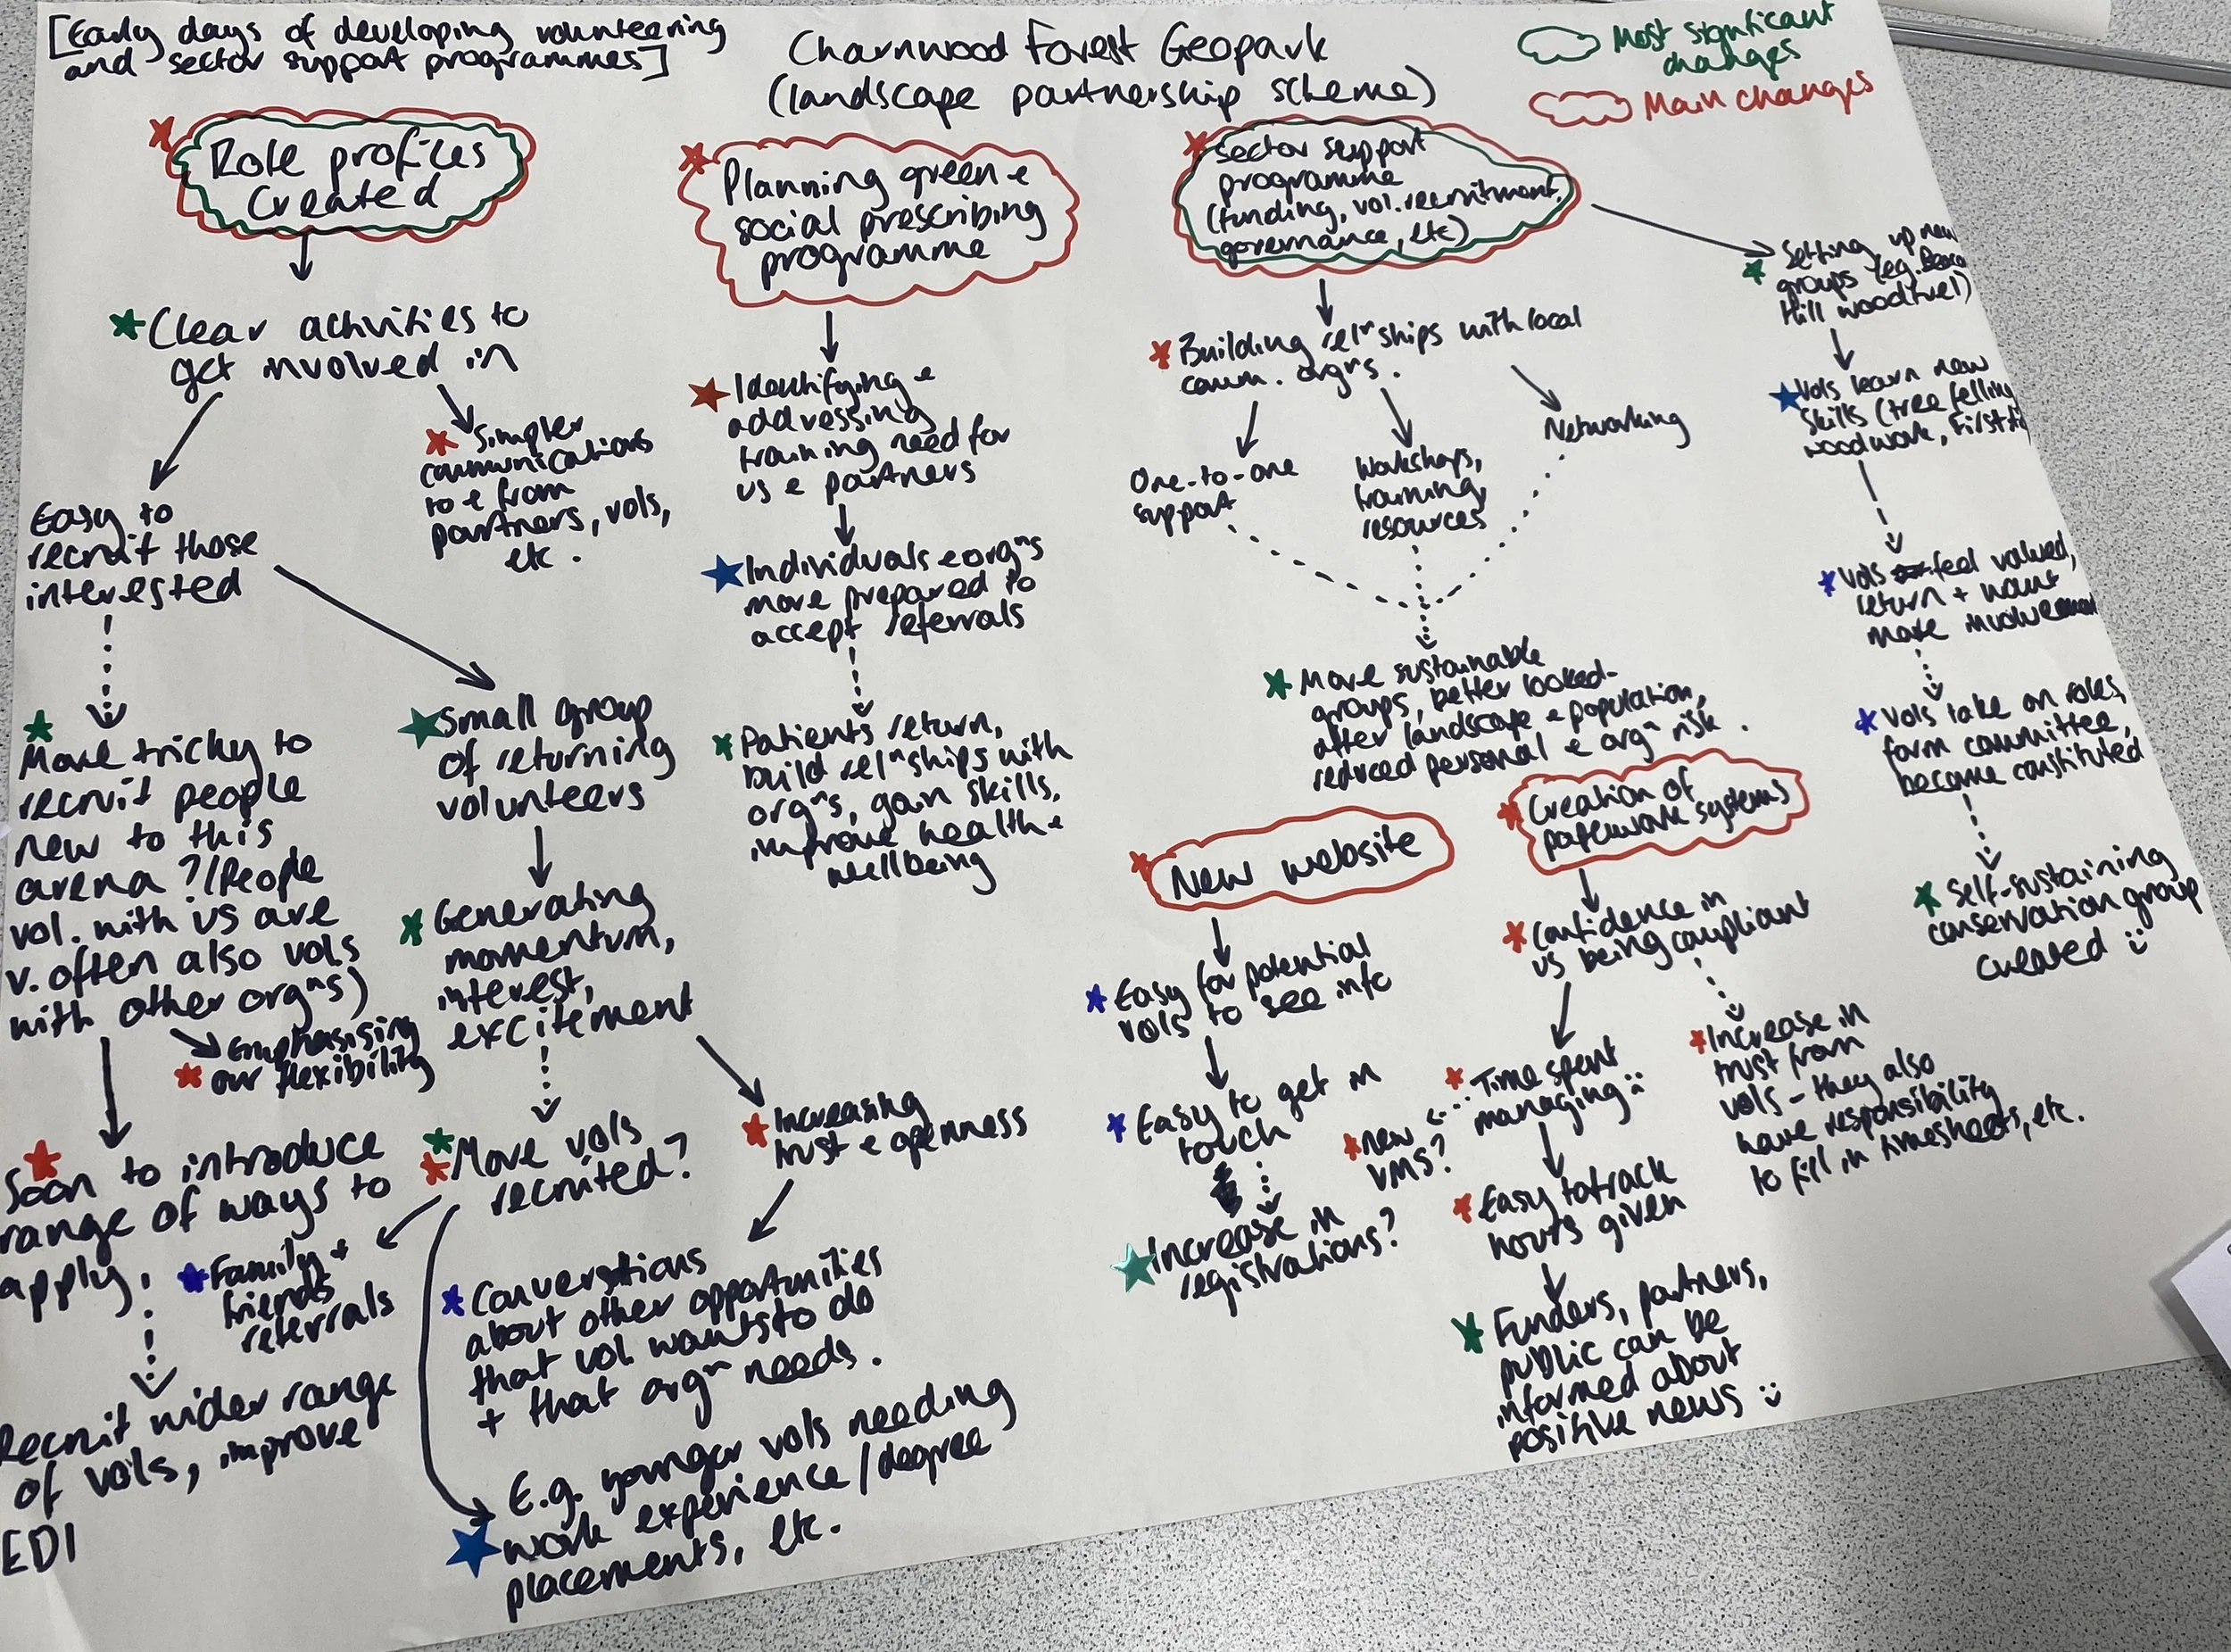 [Early days of developing volunteering
and sector support programmes]
Charnwood Forest Geopark
(landscape partnership scheme)
Most significant
changes
Main changes
Role profiles
created
Clear activities to
get involved in
Simpler
communications
to & from
partners, vols,
etc.
Easy to
recruit those
interested
More tricky to
recruit people
new to this
arena?/People
vol. with us are
v. often also vols
with other orgns)
Emphasising
our flexibility
Soon to introduce
range of ways to
apply.
Recruit wider range
of vols, improve
EDI
Small group
of returning
volunteers
Generating
momentum,
interest,
excitement
More vols
recruited?
Family +
friends
referrals
Increasing
trust & openness
Conversations
about other opportunities
that vol wants to do
+ that orgn needs.
E.g. younger vols needing
work experience/degree
placements, etc.
Planning green &
social prescribing
programme
Identifying &
addressing
training need for
us & partners
Individuals & orgns
more prepared to
accept referrals
Patients return,
build relnships with
orgns, gain skills,
improve health &
wellbeing
Sector support
programme
(funding, vol. recruitment,
governance, etc)
Building relnships with local
comm. orgns.
One-to-one
support
Workshops,
training,
resources
Networking
More sustainable
groups, better looked-
after landscape & population,
reduced personal & orgn risk.
Setting up new
groups (eg. Beacon
Hill woodfuel)
Vols learn new
skills (tree felling
woodwork, First
Vols feel valued,
return + want
more involvement
Vols take on roles,
form committee,
become constituted
Self-sustaining
conservation group
created
New website
Easy for potential
vols to see info
Easy to get in
touch
Increase in
registrations?
Creation of
paperwork systems
Confidence in
us being compliant
Time spent
managing
new
VMS?
Easy to track
hours given
Funders, partners,
public can be
informed about
positive news
Increase in
trust from
vols - they also
have responsibility
to fill in timesheets, etc.